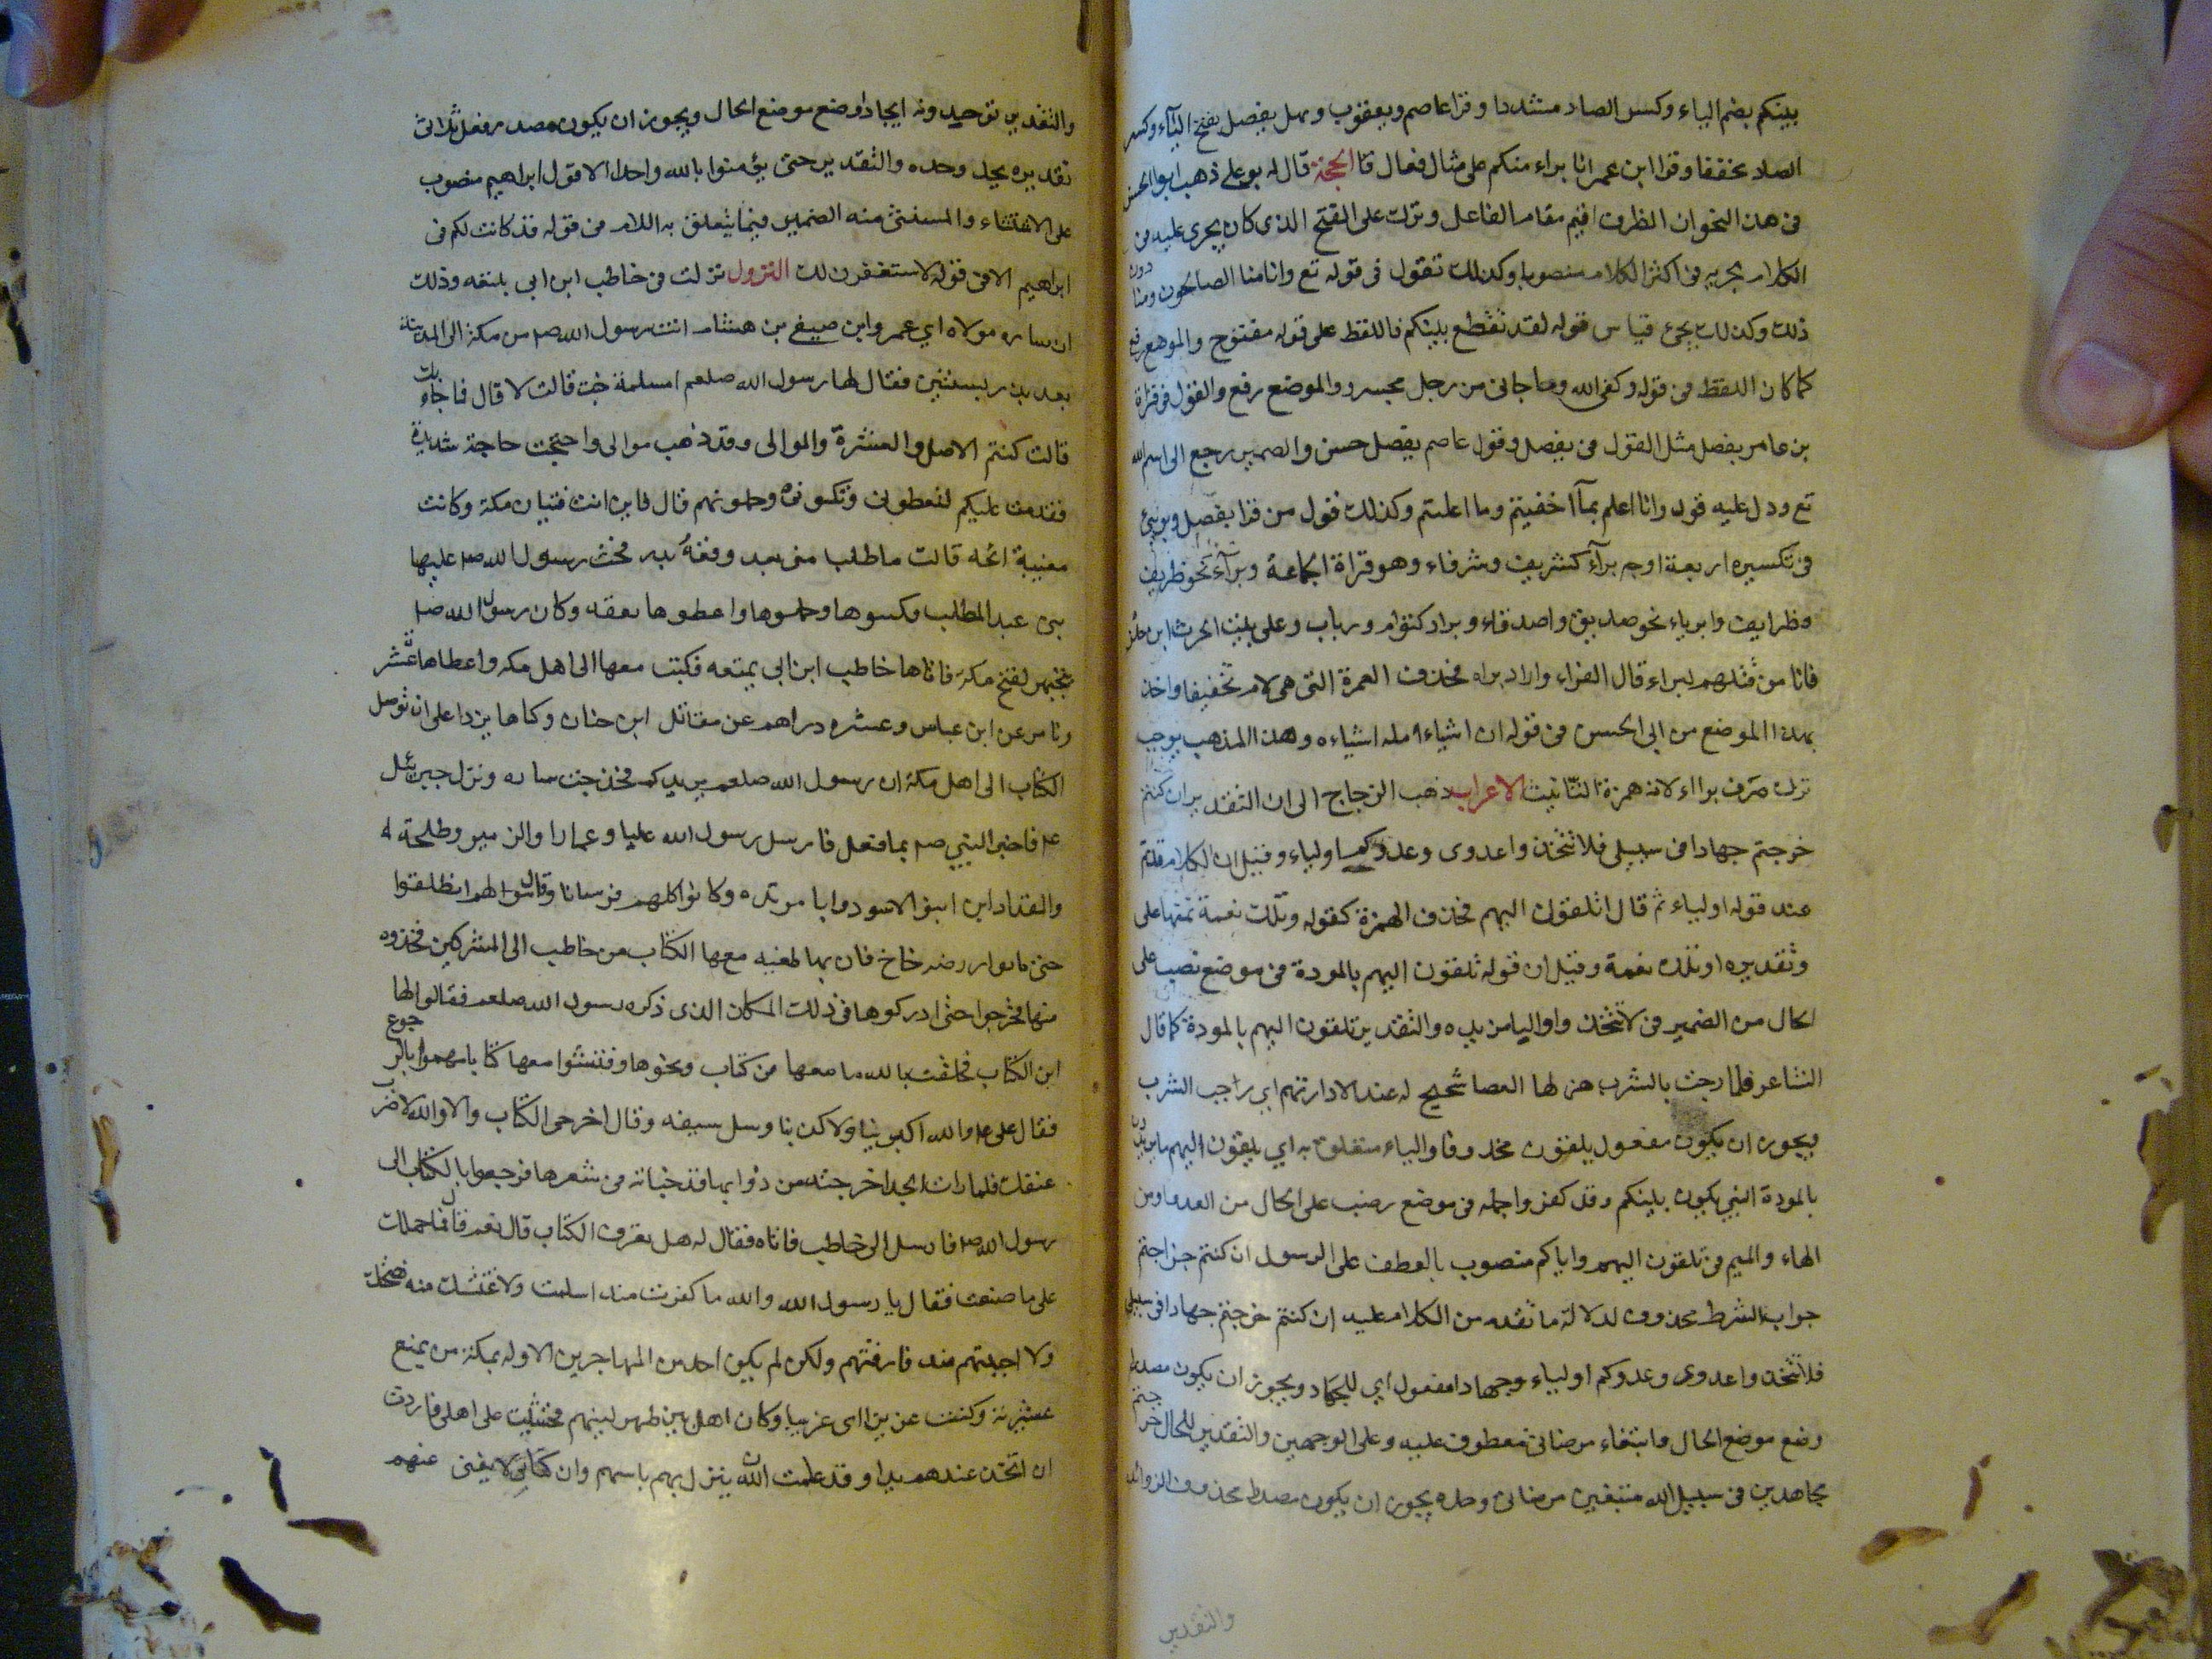 بينكم بضم الياء وكسر الصاد مشددا وقرا عاصم ويعقوب وسهل يفصل بفتح الياء وكسر
الصاد مخففا وقرا ابن عمر انا براء منكم على مثال فعال قا الحجة قال له بو علي ذهب ابو الحسن
فى هذا النحو ان الظرف اقيم مقام الفاعل وترك على الفتح الذى كان يجرى عليه فى
الكلام لجريه فى اكثر الكلام منصوبا وكذلك تقول فى قوله تع وانا منا الصالحون ومنا دون
ذلك وكذلك يجئ قياس قوله لقد تقطع بينكم فاللفظ على قوله مفتوح والموضع رفع
كما كان اللفظ فى قوله وكفى الله وما جانى من رجل مجرور والموضع رفع والقول فى قراة
بن عامر يفصل مثل القول فى يفصل وقول عاصم يفصل حسن والضمير رجع الى اسم الله
تع ودل عليه قوله وانا اعلم بما اخفيتم وما اعلنتم وكذلك قول من قرا يفصل
فى تكسيره اربعة اوجه برآء كشريف وشرفاء وهو قراة الجماعة وبرآء نحو ظريف
وظراف وابرياء نحو صديق واصدقاء وبراء كتوام ورباب وعلى بيت الحرث ابن حلزة
فانا من قتلهم لبراء قال الفراء واراد براء فحذف الهمزة التى هى لام تخفيفا واخذ
هذا الموضع من ابى الحسن فى قوله ان اشياء اصله اشياء وهذا المذهب يوجب
ترك صرف براء لانه همزة التانيث الاعراب ذهب الزجاج الى ان التقدير ان كنتم
خرجتم جهادا فى سبيلى فلا تتخذوا عدوى وعدوكم اولياء وقيل ان الكلام قد تم
عند قوله اولياء ثم قال اتلقون اليهم فحذف الهمزة كقوله وتلك نعمة تمنها على
وتقديره او تلك نعمة وقيل ان قوله تلقون اليهم بالمودة فى موضع نصب على
الحال من الضمير فى لا تتخذوا والتقدير تلقون اليهم بالمودة كما قال
الشاعر فلما رجت بالشرب هز لها العصا شحيح له عند الادا نهيم اي رجت الشرب
ويجوز ان يكون مفعول يلقون محذوفا والباء متعلق به اي يلقون اليهم ما يريدون
بالمودة التى يكون بينكم وقد كفروا جملة فى موضع نصب على الحال من العدو او من
الهاء والميم فى تلقون اليهم واياكم منصوب بالعطف على الرسول ان كنتم خرجتم
جواب الشرط محذوف لدلالة ما تقدم من الكلام عليه ان كنتم خرجتم جهادا فى سبيلى
فلا تتخذوا عدوى وعدوكم اولياء وجهادا مفعول اي للجهاد ويجوز ان يكون مصدرا
وضع موضع الحال وابتغاء مرضاتى معطوف عليه وعلى الوجهين والتقدير للحال خرجتم
مجاهدين فى سبيل الله مبتغين مرضاتى وحده يجوز ان يكون مصدرا محذوف الزوائد
والتقدير
والتقدير توحيدونه ايجادا وضع موضع الحال ويجوز ان يكون مصدر فعل ثلاثى
تقديره يحد وحده والتقدير حتى يؤمنوا بالله واحدا الا قول ابراهيم منصوب
على الاستثناء والمستثنى منه الضمير فيما يتعلق به اللام من قوله قد كانت لكم فى
ابراهيم الا فى قوله لاستغفرن لك النزول نزلت فى خاطب ابن ابى بلتعه وذلك
ان ساره مولاة ابي عمرو ابن صيفى بن هشام اتت رسول الله صلم من مكة الى المدينة
بعد بدر بسنتين فقال لها رسول الله صلعم امسلمة جئت قالت لا قال فما جاء بك
قالت كنتم الاصل والعشرة والموالى وقد ذهب موالى واحتجت حاجة شديدة
فقدمت عليكم لتعطونى وتكسونى وحملونهم قال فاين انت فتيان مكة وكانت
مغنية نائحه قالت ما طلب منى بعد وقعة بدر فحث رسول الله صلم عليها
بنى عبد المطلب فكسوها وحملوها واعطوها نفقه وكان رسول الله صلم
يتجهز لفتح مكة فاتاها خاطب ابن ابى بلتعه فكتب معها الى اهل مكه واعطاها عشر
دنانير عن ابن عباس وعشره دراهم عن مقاتل ابن حنان وكساها بردا على ان توصل
الكتاب الى اهل مكة ان رسول الله صلعم يريدكم فخرجت ساره ونزل جبرئيل
عم فاخبر النبي صلم بما فعل فارسل رسول الله عليا وعمارا والزبير وطلحة
والمقداد ابن الاسود وابا مرثد وكانوا كلهم فرسانا وقال لهم انطلقوا
حتى تاتوا روضه خاخ فان بها ظعينه معها الكتاب من خاطب الى المشركين فخذوه
منها فخرجوا حتى ادركوها فى ذلك المكان الذى ذكره رسول الله صلعم فقالوا لها
اين الكتاب فحلفت بالله ما معها من كتاب ونحوها وفتشوا معها كتابا فهموا بالرجوع
فقال على عم والله اكبر بنا ولا كذبنا وسل سيفه وقال اخرجى الكتاب والا والله لاضرب
عنقك فلما رات الجد اخرجته من ذوابها قد خباته فى شعرها فرجعوا بالكتاب الى
رسول الله صلم فارسل الى خاطب فاتاه فقال له هل تعرف الكتاب قال نعم قال فما حملك
على ما صنعت فقال يا رسول الله والله ما كفرت منذ اسلمت ولا غششتك منذ نصحتك
ولا اجبتهم منذ فارقتهم ولكن لم يكن احد من المهاجرين الا وله بمكة من يمنع
عشيرته وكنت عزيزا اى غريبا وكان اهلى بين ظهرانيهم فخشيت على اهلى فاردت
ان اتخذ عندهم يدا وقد علمت ان الله ينزل بهم باسهم وان كتابى لا يغنى عنهم